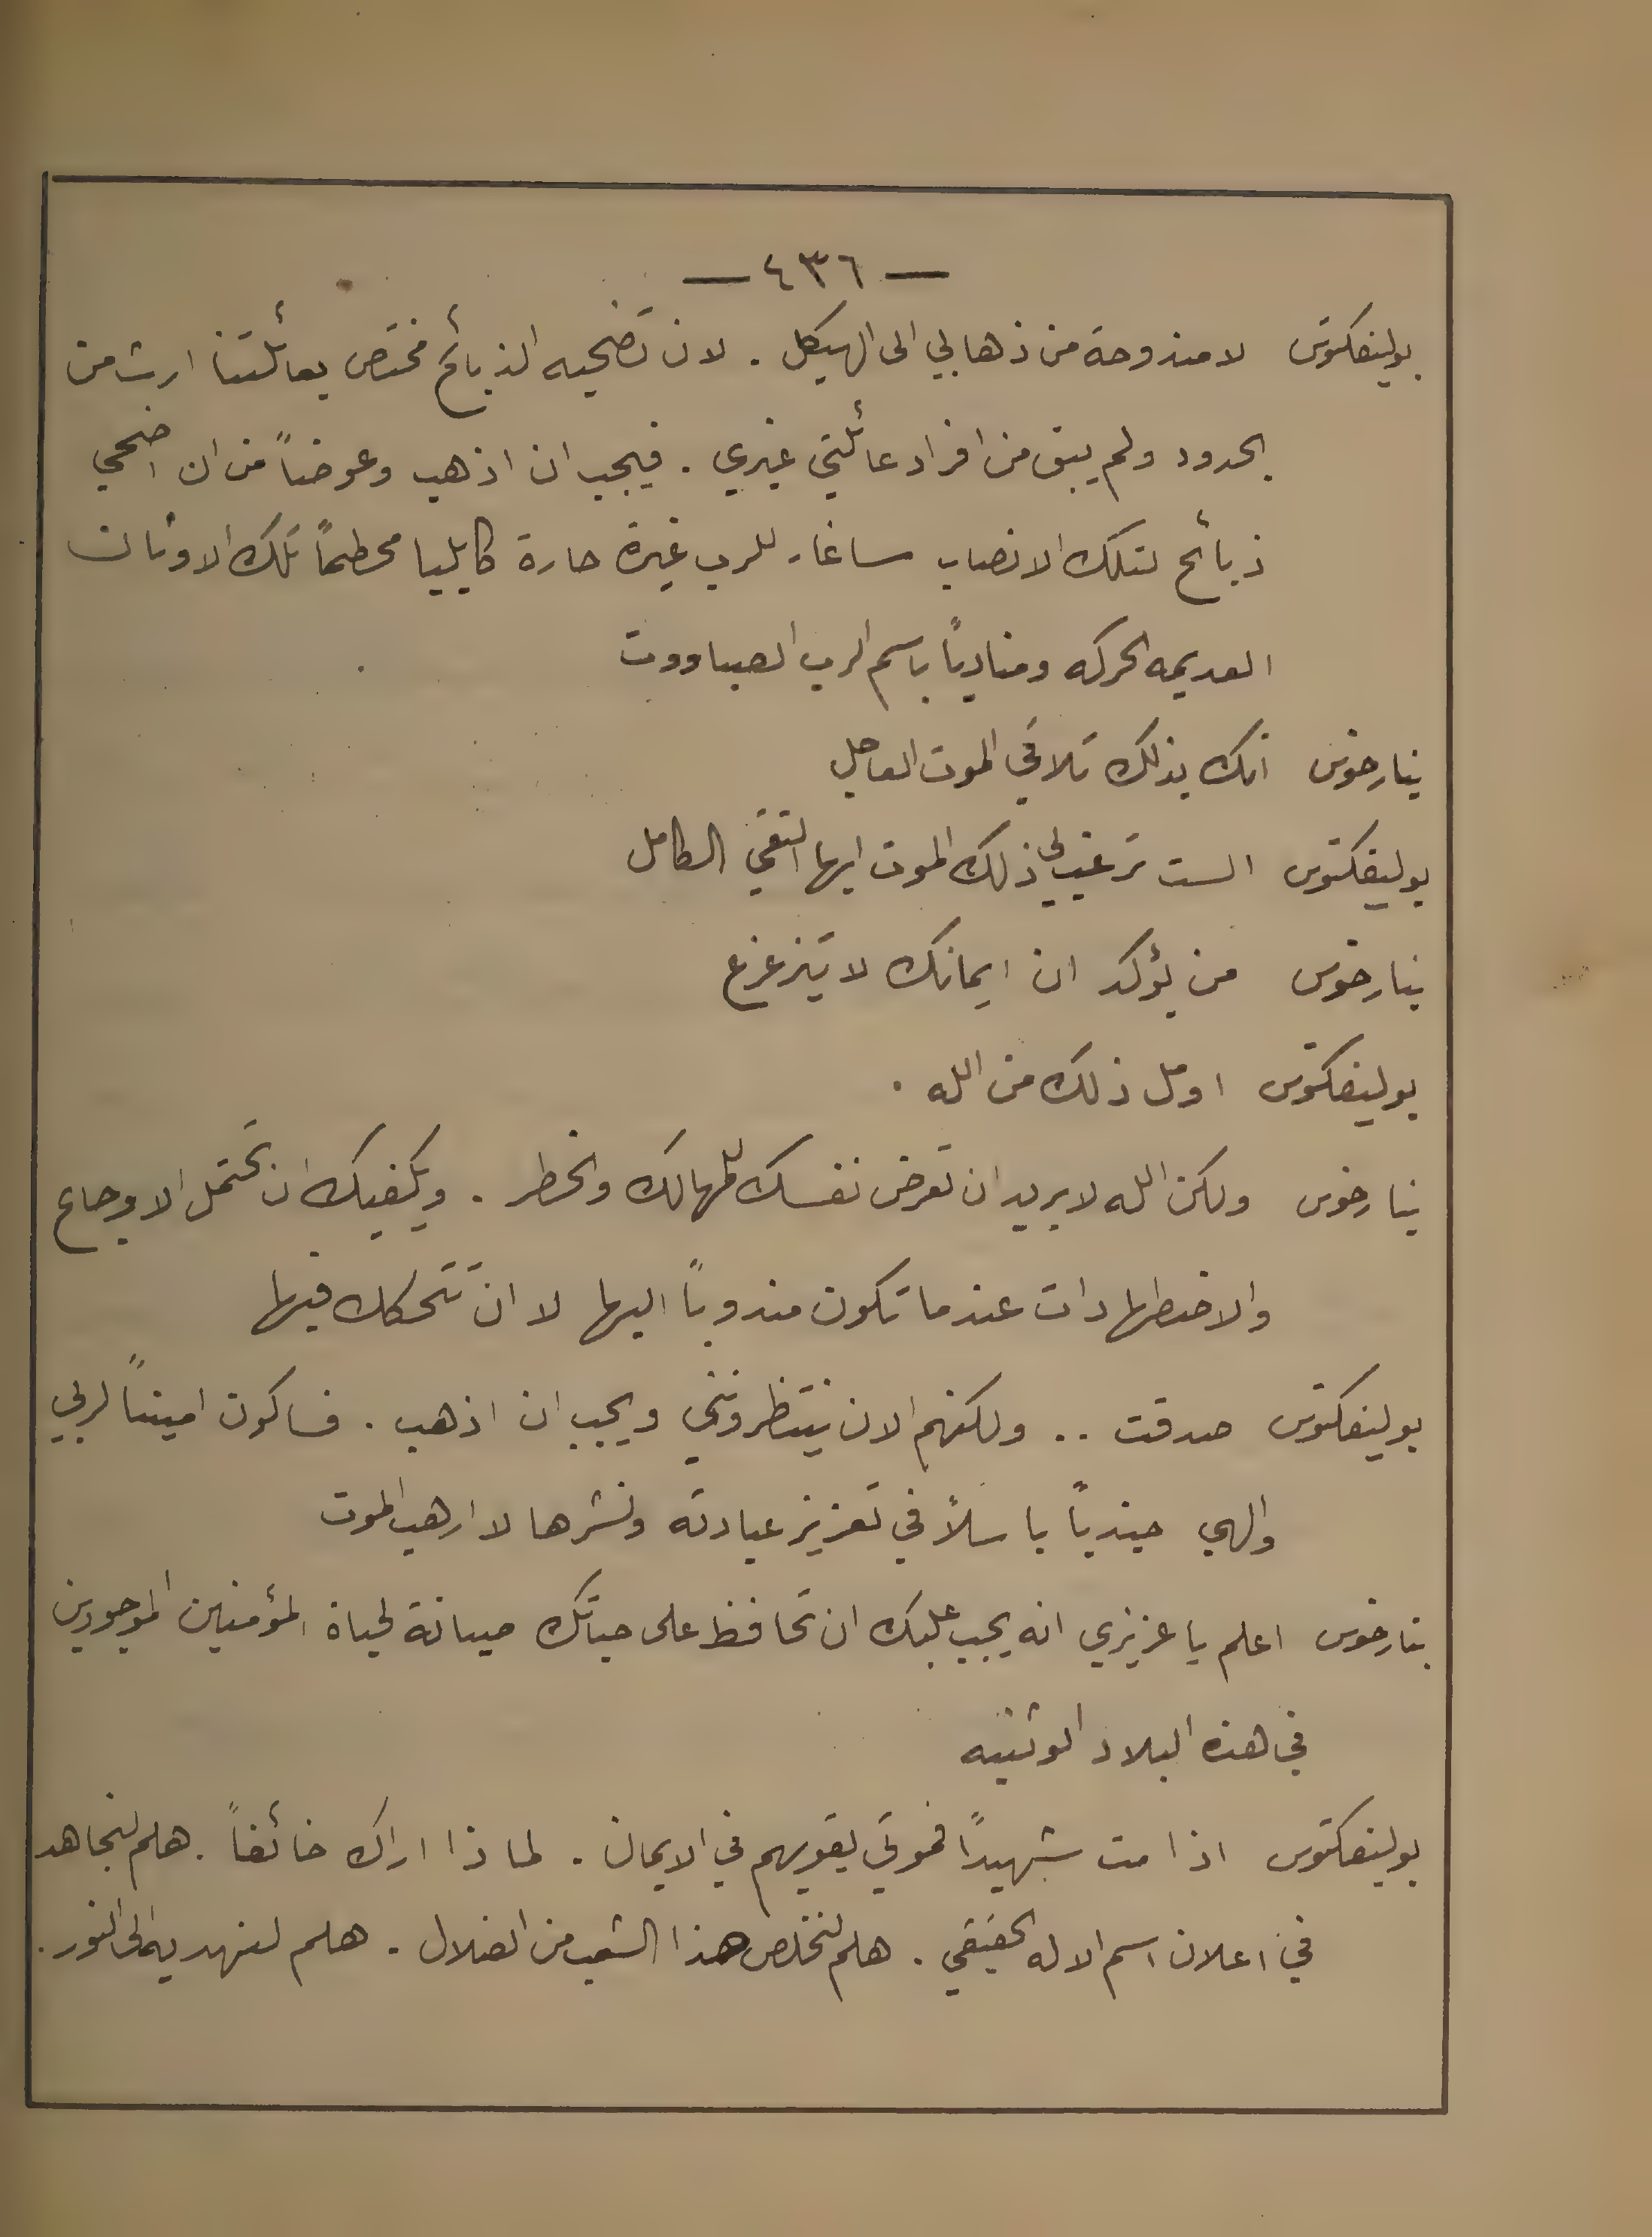 — ٤٣٦ —
بوليفكتوس لا مندوحة من ذهابي الى الهيكل . لان تضحيه الذبائح مختص بعائلتنا ارث من
الجدود ولم يبق من افراد عائلتي غيري . فيجب ان اذهب وعوضاً من ان اضحي
ذبائح لتلك الانصاب ساغار للرب غيرة حارة كايليا محطماً تلك الاوثان
العديمه الحركه ومنادياً باسم الرب الصباووت
نيارخوس انك بذلك تلاقي الموت العاجل
بوليفكتوس الست ترغب لي ذلك الموت ايها التقي الكامل
نيارخوس من يؤكد ان ايمانك لا يتزعزع
بوليفكتوس اومل ذلك من الله .
نيارخوس ولكن الله لا يريد ان تعرض نفسك للمهالك والخطر . ويكفيك ان تحتمل الاوجاع
والاضطهادات عندما تكون مندوباً اليها لا ان تتحكك فيها
بوليفكتوس صدقت .. ولكنهم الان ينتظرونني ويجب ان اذهب . فساكون اميناً لربي
والهي جندياً باسلاً في تعزيز عبادته ونشرها لا ارهب الموت
نيارخوس اعلم يا عزيزي انه يجب عليك ان تحافظ على حياتك صيانة لحياة المؤمنين الموجودين
في هذه البلاد الوثنيه
بوليفكتوس اذا مت شهيداً فموتي يقويهم في الايمان . لماذا اراك خائفاً . هلم لنجاهد
في اعلان اسم الاله الحقيقي . هلم لنخلص هذا الشعب من الضلال . هلم لنهديه الى النور .